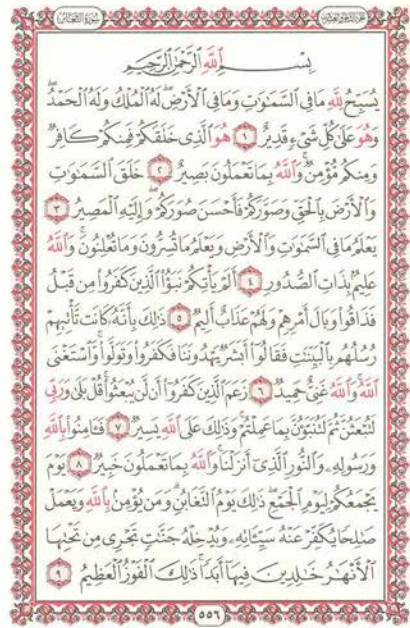 الجزء الثامن والعشرون سورة التغابن
بِسْمِ ٱللَّهِ ٱلرَّحْمَٰنِ ٱلرَّحِيمِ
يُسَبِّحُ لِلَّهِ مَا فِى ٱلسَّمَٰوَٰتِ وَمَا فِى ٱلْأَرْضِ ۖ لَهُ ٱلْمُلْكُ وَلَهُ ٱلْحَمْدُ ۖ
وَهُوَ عَلَىٰ كُلِّ شَىْءٍ قَدِيرٌ ١ هُوَ ٱلَّذِى خَلَقَكُمْ فَمِنكُمْ كَافِرٌ
وَمِنكُم مُّؤْمِنٌ ۚ وَٱللَّهُ بِمَا تَعْمَلُونَ بَصِيرٌ ٢ خَلَقَ ٱلسَّمَٰوَٰتِ
وَٱلْأَرْضَ بِٱلْحَقِّ وَصَوَّرَكُمْ فَأَحْسَنَ صُوَرَكُمْ ۖ وَإِلَيْهِ ٱلْمَصِيرُ ٣
يَعْلَمُ مَا فِى ٱلسَّمَٰوَٰتِ وَٱلْأَرْضِ وَيَعْلَمُ مَا تُسِرُّونَ وَمَا تُعْلِنُونَ ۚ وَٱللَّهُ
عَلِيمٌۢ بِذَاتِ ٱلصُّدُورِ ٤ أَلَمْ يَأْتِكُمْ نَبَؤُا۟ ٱلَّذِينَ كَفَرُوا۟ مِن قَبْلُ
فَذَاقُوا۟ وَبَالَ أَمْرِهِمْ وَلَهُمْ عَذَابٌ أَلِيمٌ ٥ ذَٰلِكَ بِأَنَّهُۥ كَانَت تَّأْتِيهِمْ
رُسُلُهُم بِٱلْبَيِّنَٰتِ فَقَالُوٓا۟ أَبَشَرٌ يَهْدُونَنَا فَكَفَرُوا۟ وَتَوَلَّوا۟ ۚ وَّٱسْتَغْنَى
ٱللَّهُ ۚ وَٱللَّهُ غَنِىٌّ حَمِيدٌ ٦ زَعَمَ ٱلَّذِينَ كَفَرُوٓا۟ أَن لَّن يُبْعَثُوا۟ ۚ قُلْ بَلَىٰ وَرَبِّى
لَتُبْعَثُنَّ ثُمَّ لَتُنَبَّؤُنَّ بِمَا عَمِلْتُمْ ۚ وَذَٰلِكَ عَلَى ٱللَّهِ يَسِيرٌ ٧ فَـَٔامِنُوا۟ بِٱللَّهِ
وَرَسُولِهِۦ وَٱلنُّورِ ٱلَّذِىٓ أَنزَلْنَا ۚ وَٱللَّهُ بِمَا تَعْمَلُونَ خَبِيرٌ ٨ يَوْمَ
يَجْمَعُكُمْ لِيَوْمِ ٱلْجَمْعِ ۖ ذَٰلِكَ يَوْمُ ٱلتَّغَابُنِ ۗ وَمَن يُؤْمِنۢ بِٱللَّهِ وَيَعْمَلْ
صَٰلِحًا يُكَفِّرْ عَنْهُ سَيِّـَٔاتِهِۦ وَيُدْخِلْهُ جَنَّٰتٍ تَجْرِى مِن تَحْتِهَا
ٱلْأَنْهَٰرُ خَٰلِدِينَ فِيهَآ أَبَدًا ۚ ذَٰلِكَ ٱلْفَوْزُ ٱلْعَظِيمُ ٩
٥٥٦